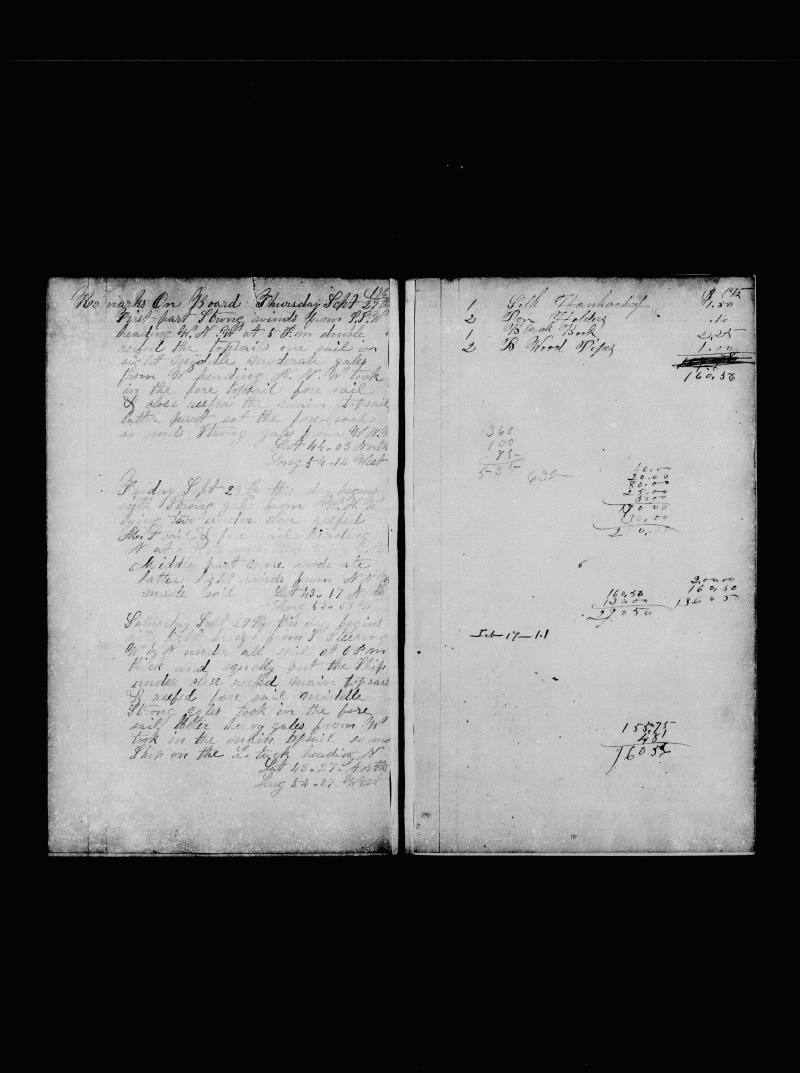 Remarks On Board Thursday Sept 27th
First part Strong winds from S.S.W
heading W.N.W at 5 P.m double
reefd the topsails one sail in
sight Middle moderate gales
from W heading N.N.W took
in the fore topsail fore sail
& close reefed the main topsail
latter part set the fore sail
so ends Strong gales from W.N.W
Lat 44.03 North
Long 54.12 West
Friday Sept 28th this day begins
with Strong gales from W.N.W
lying under close reefed
M.T sail & fore sail heading
Middle part more moderate
latter light winds from N.N.W
made sail Lat 43.17 North
Long 53
Saturday Sept 29th this day begins
with light breeze from S Steering
W by N under all sail at 6 P.m
thick and squally put the Ship
under close reefed main topsail
& reefd fore sail middle
Strong gales took in the fore
sail latter heavy gales from W
took in the main topsail so ends
Ship on the L. tack heading N
Lat 43.27 North
Long 54.07 West
$ Cts
1 Silk Hankerchief " 1.50
2 Pen Holders .10
1 Blank Book 2.25
2 B Wood Pipes 1.00
160,56
360
100
75
535
635
40.00
20.00
80.00
25.00
2,00,00
160,50
160,50
130,00
29056
Feb 17-11
155,75
481
16056